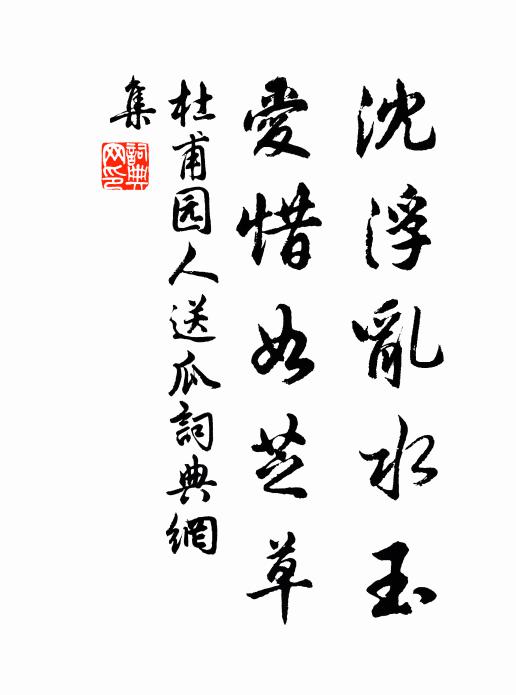 沈浮亂水玉
愛惜如芝草
杜甫园人送瓜詞典網
集
詞典網印